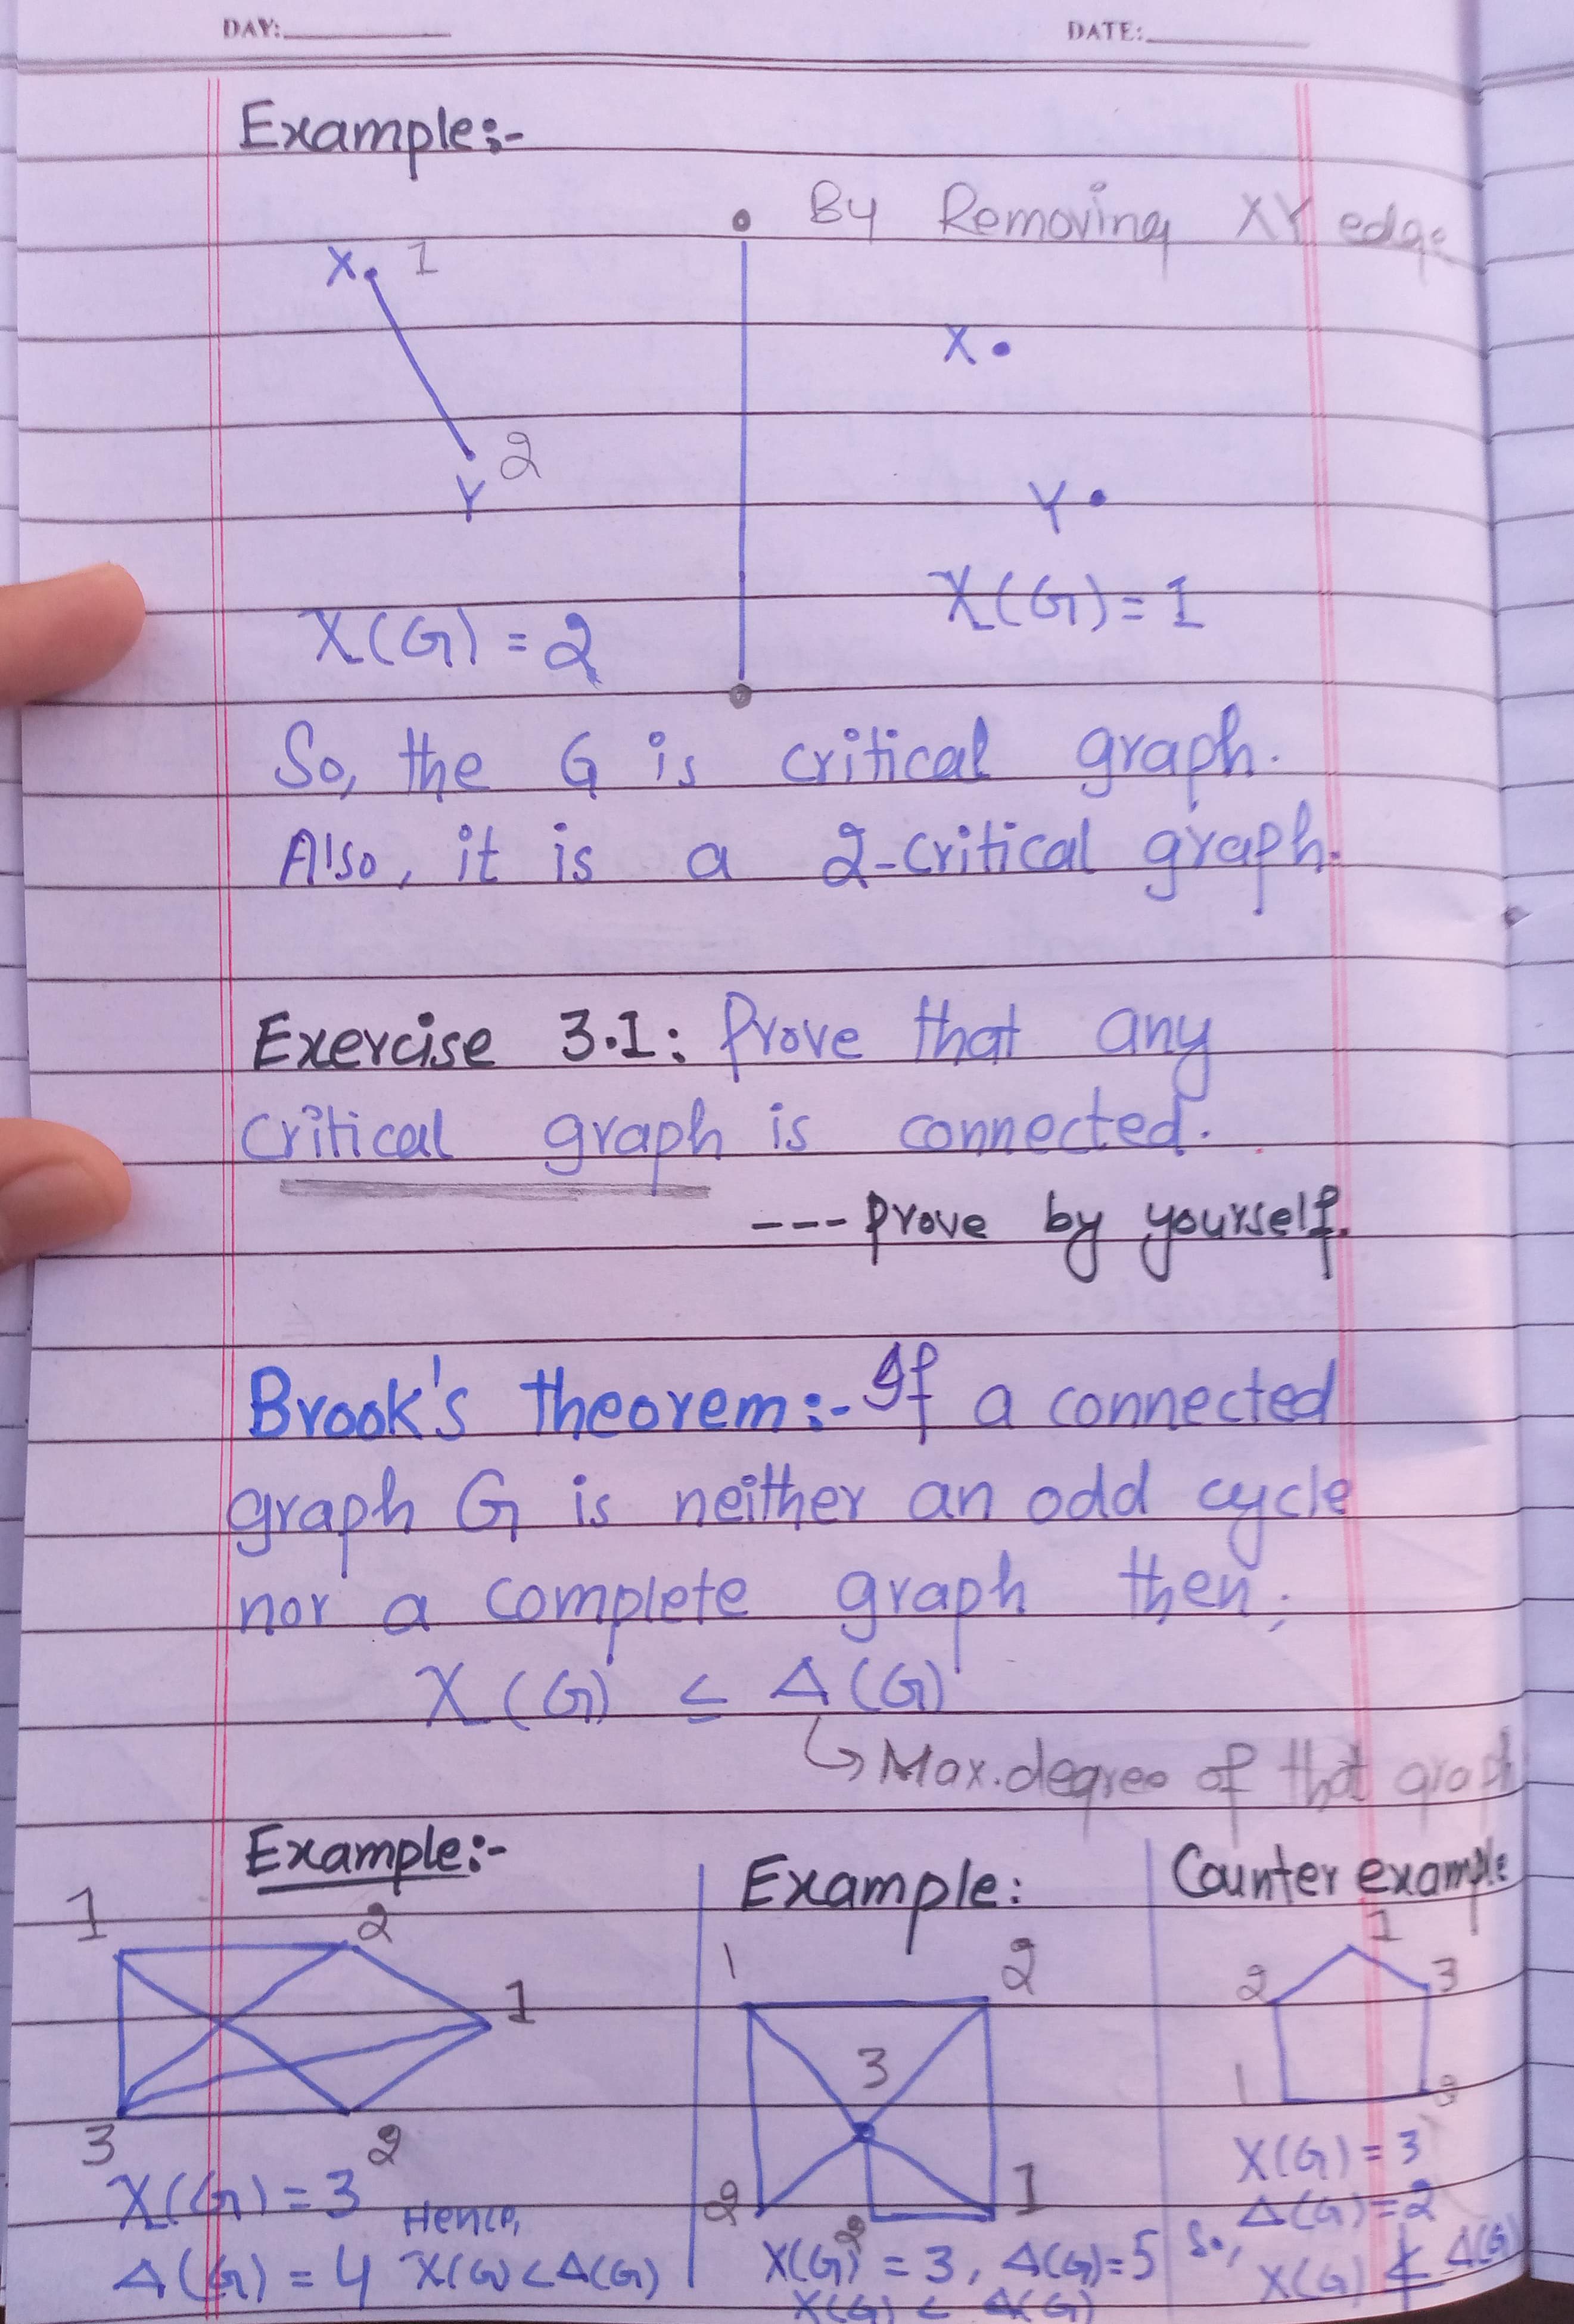 DAY: DATE:
Example:-
By Removing XY edge
X 1
X
2
Y
Y
X(G) = 2
X(G) = 1
So, the G is critical graph.
Also, it is a 2-critical graph.
Exercise 3.1: Prove that any
critical graph is connected.
--- Prove by yourself.
Brook's theorem:- If a connected
graph G is neither an odd cycle
nor a complete graph then;
X (G) ≤ Δ(G)
↳ Max. degree of that graph
Example:-
1 2
1
3 2
X(G) = 3
Hence,
Δ(G) = 4 X(G) < Δ(G)
Example:
1 2
3
2 2 1
X(G) = 3, Δ(G) = 5
X(G) < Δ(G)
Counter example
1
2 3
1 2
X(G) = 3
Δ(G) = 2
So,
X(G) ≮ Δ(G)